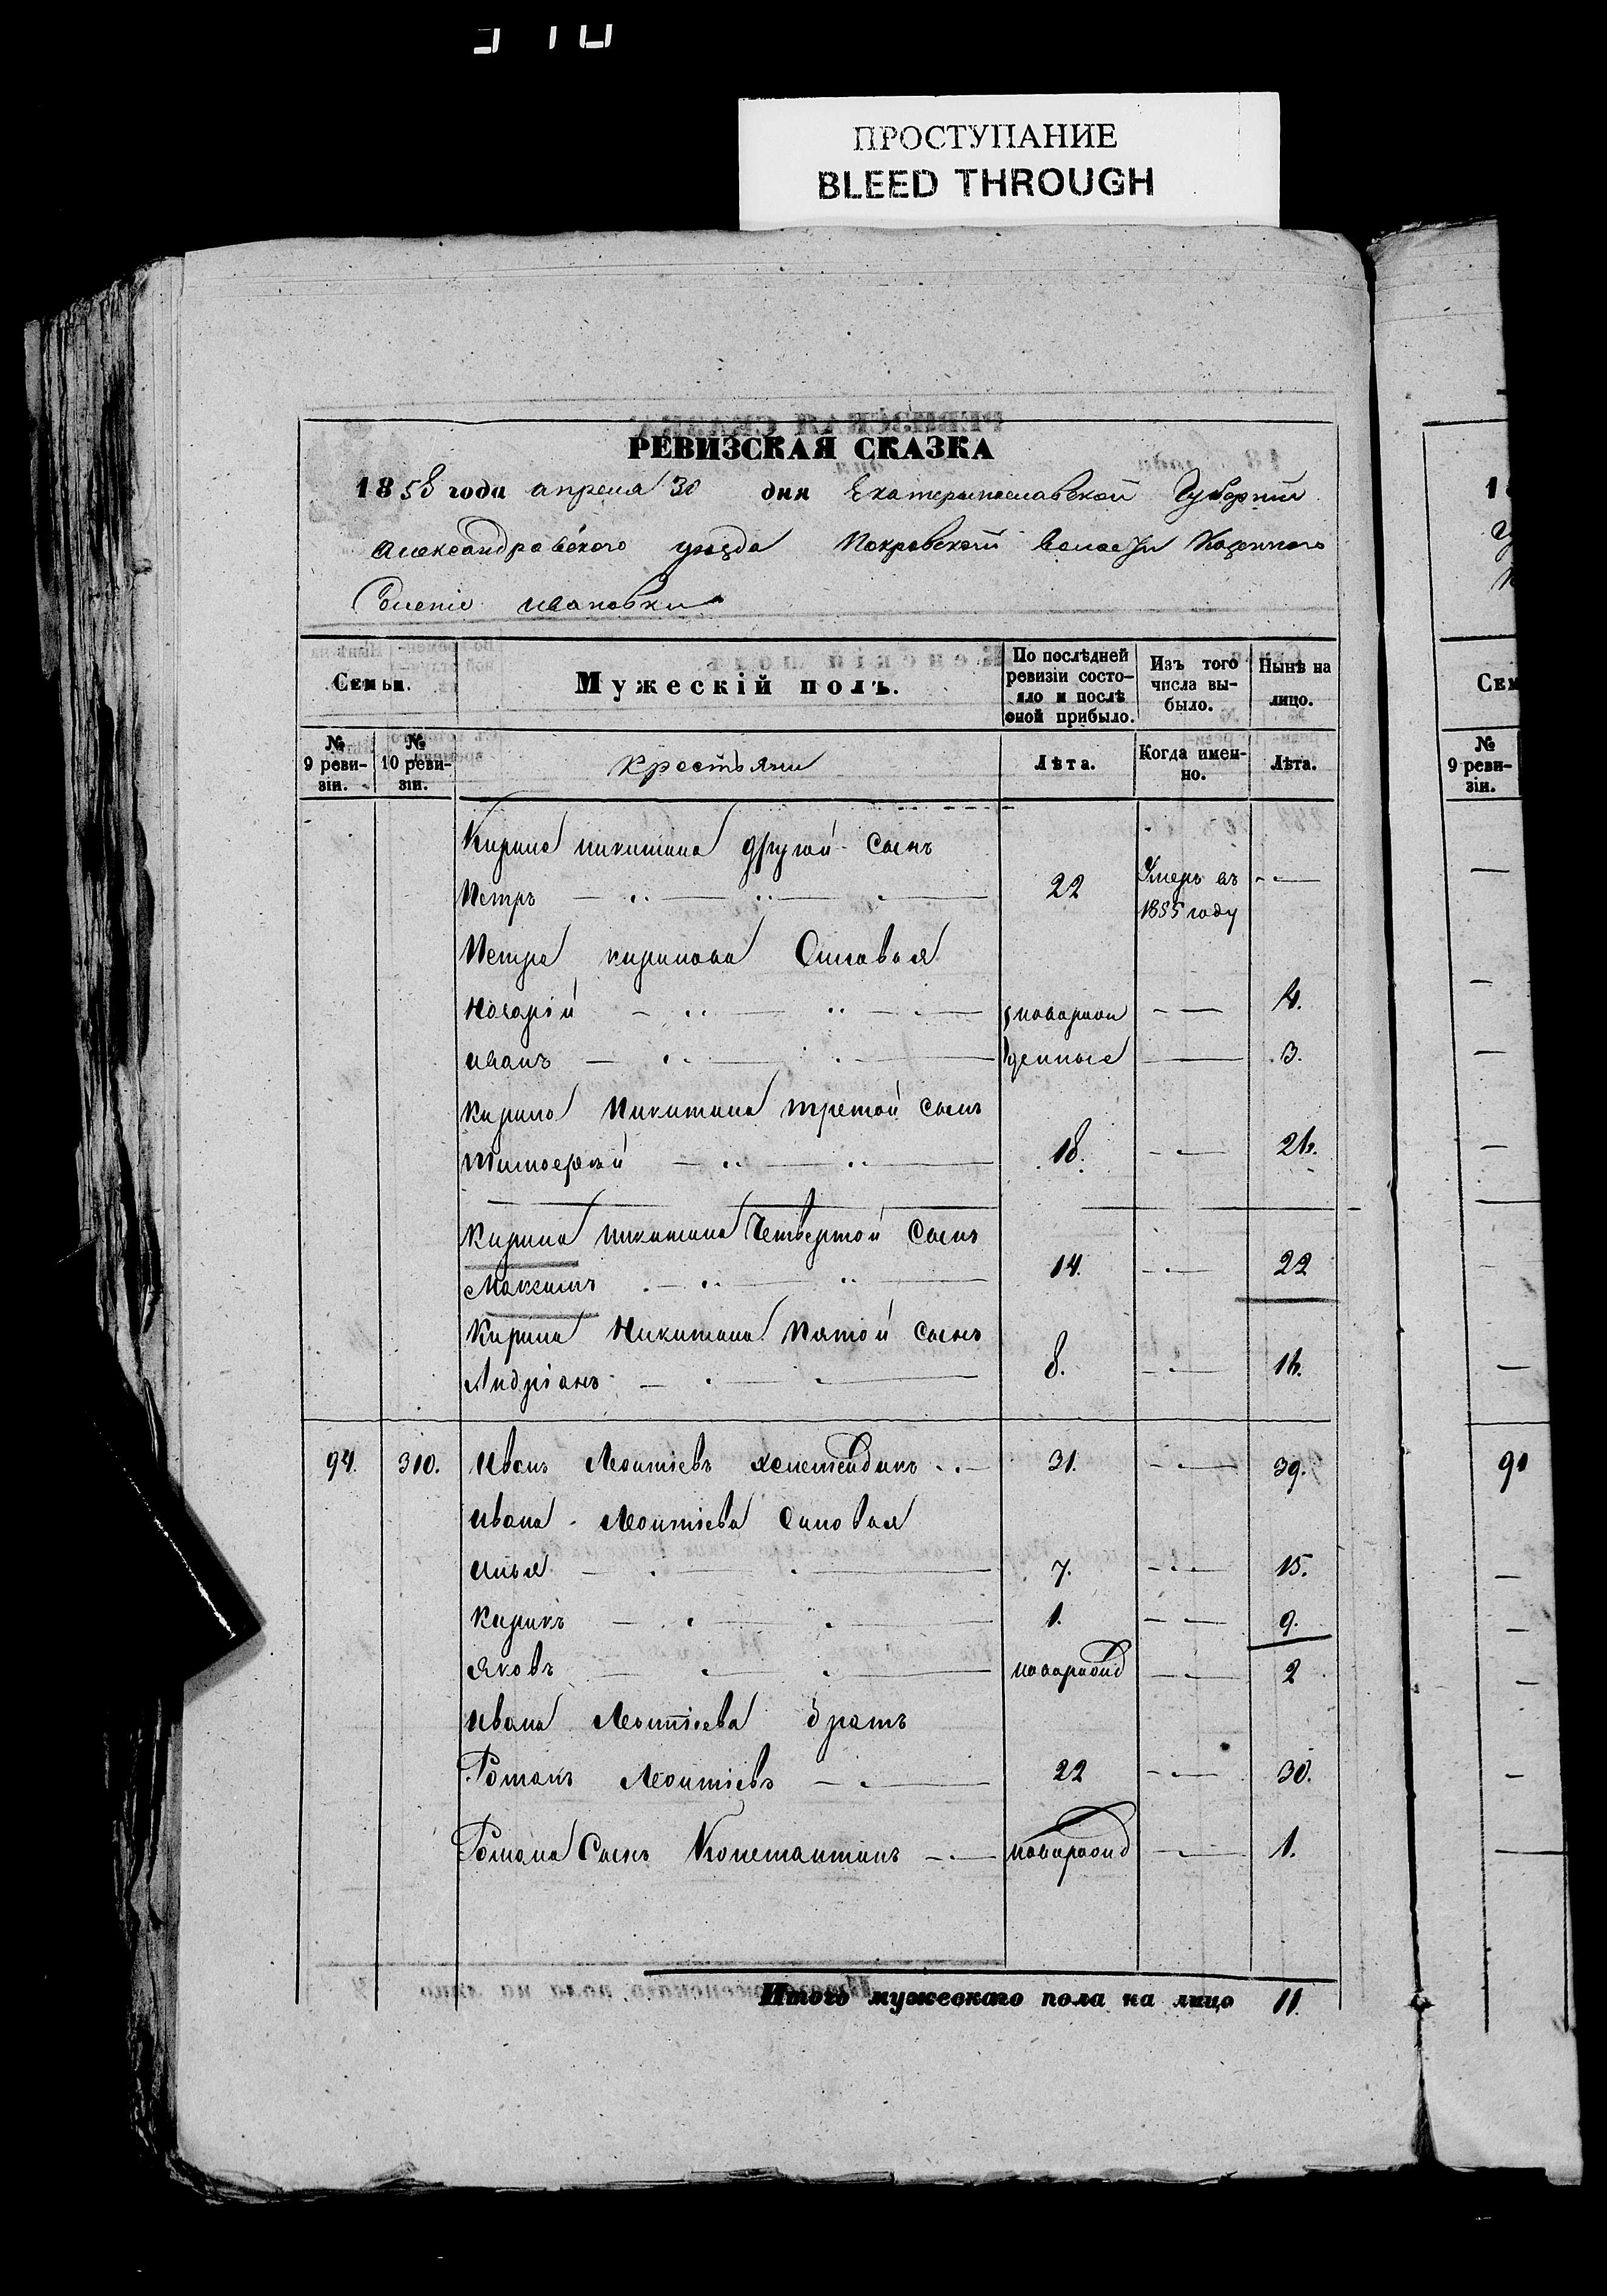 ПРОСТУПАНИЕ
BLEED THROUGH
РЕВИЗСКАЯ СКАЗКА
1858 года апреля 30 дня Екатеринославской Губернии
Александровского уезда Покровской волости Казенного
Селенiе Ивановки
Семьи.
Мужескій полъ.
По послѣдней ревизіи состояло и послѣ оной прибыло.
Изъ того числа выбыло.
Нынѣ на лицо.
№ 9 ревизіи.
№ 10 ревизіи.
Крестьяни
Лѣта.
Когда именно.
Лѣта.
Кирила Никитина другой Сынъ
Петръ 22 Умеръ въ 1855 году
Петра Кирилова Сыновья
Назарій новорож 4.
Иванъ денные 3.
Кирила Никитина третой сынъ
Тимофѣй 18. 26.
Кирила Никитина Четвертой Сынъ
Максимъ 14. 22
Кирила Никитина Пятой Сынъ
Андріанъ 8. 16.
94. 310. Иванъ Леонтіевъ 31. 39.
Ивана Леонтіева Сыновья
Илья 7. 15.
Кирикъ 1. 9.
Яковъ новорожд 2
Ивана Леонтіева братъ
Романъ Леонтіевъ 22 30.
Романа Сынъ Константинъ новорожд 1.
Итого мужескаго пола на лицо 11.
Сем
№ 9 ревизіи.